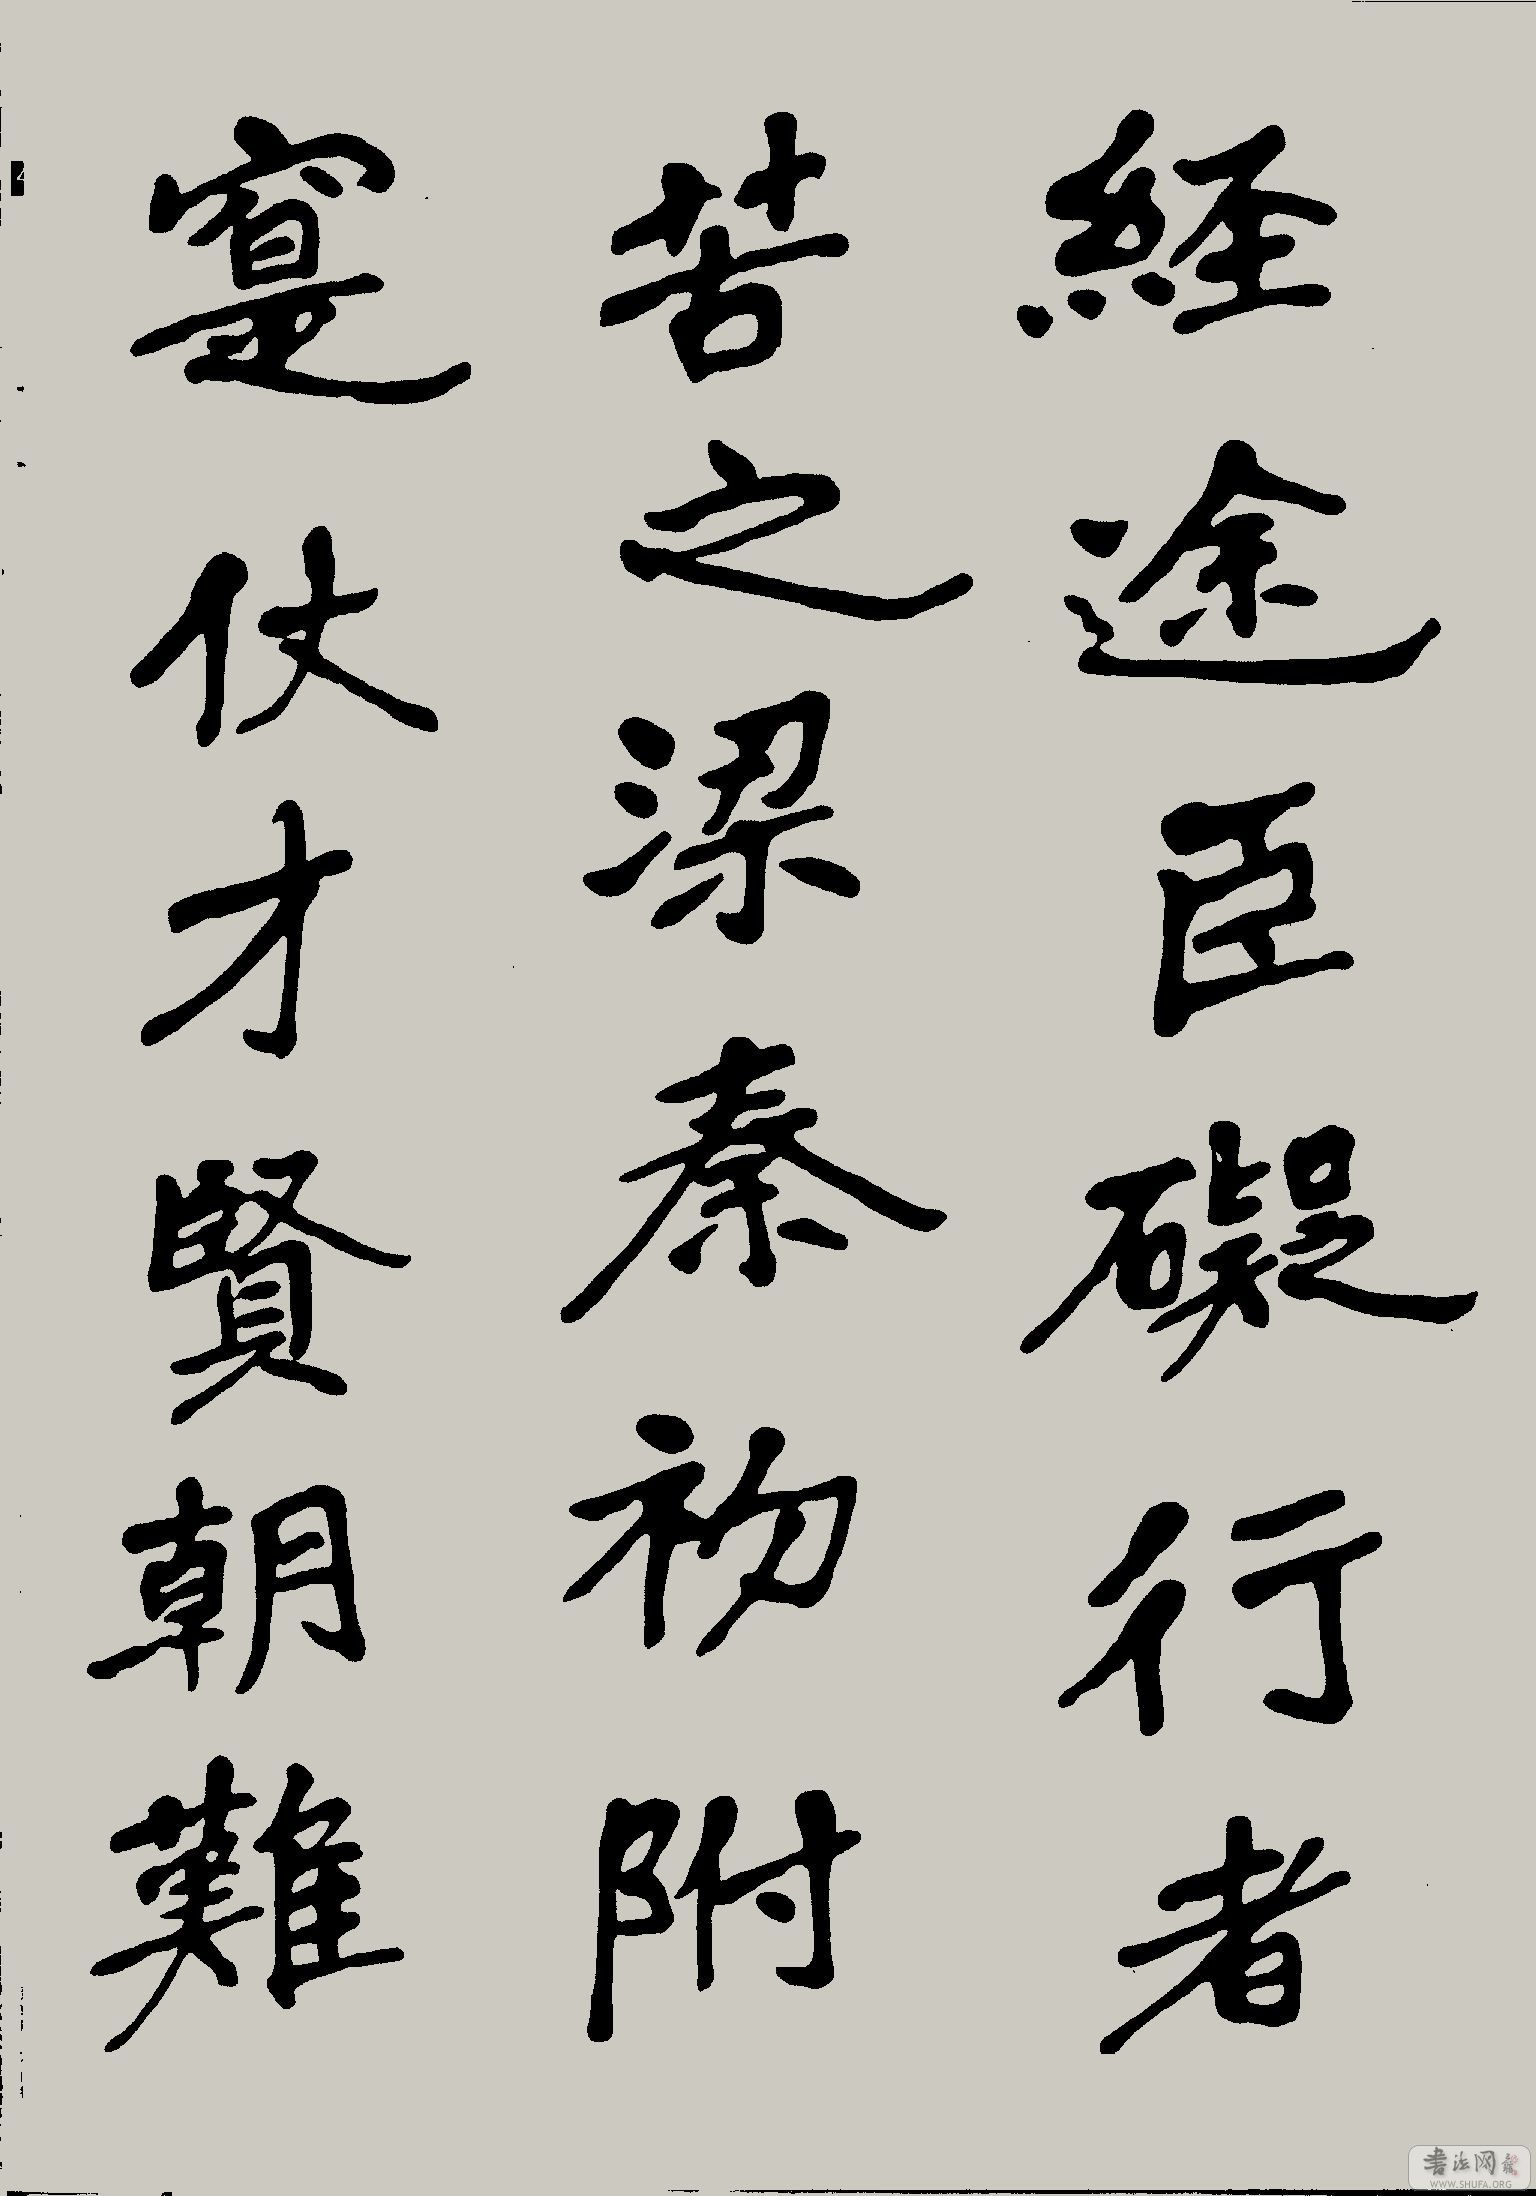 経途臣礙行者
苦之梁秦初附
寔仗才賢朝難
書法网
WWW.SHUFA.ORG